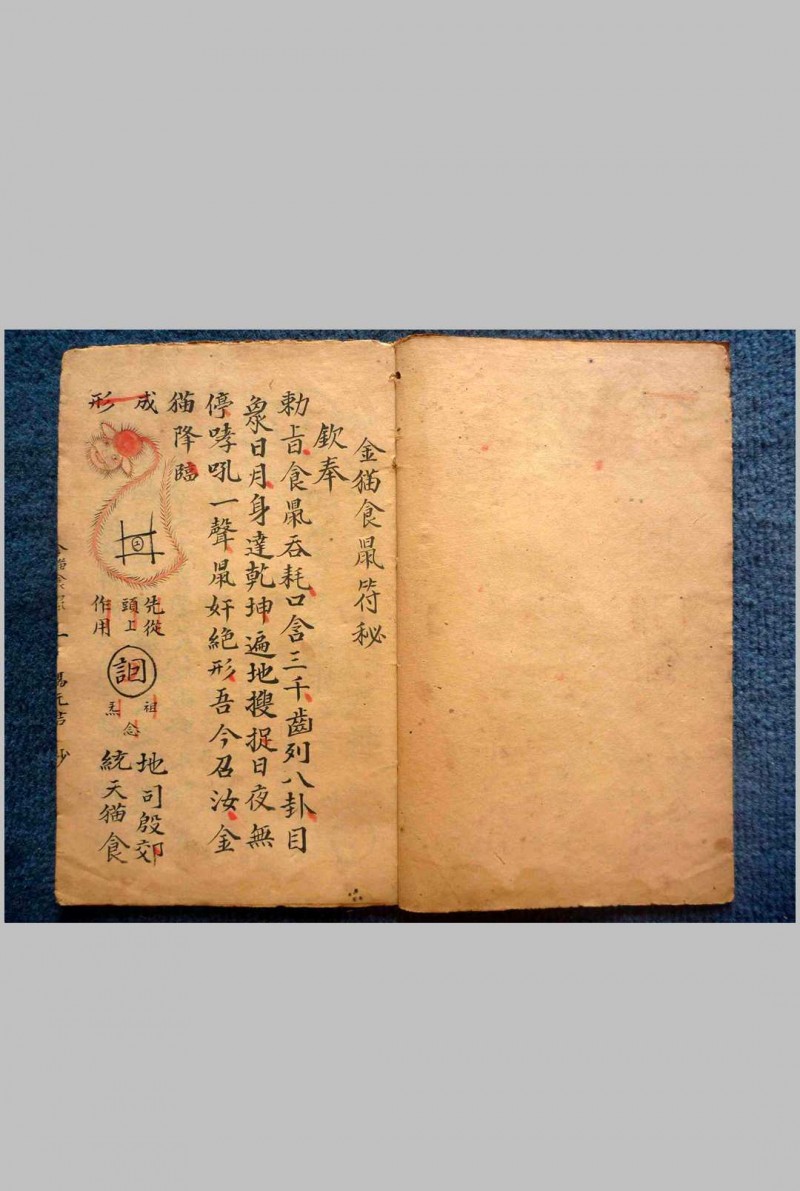 金猫食鼠符秘
欽奉
勅旨食鼠吞耗口含三千齒列八卦目
象日月身達乾坤遍地搜捉日夜無
停哮吼一聲鼠奸絕形吾今召汝金
猫降臨
成形
先從
頭上
作用
祖
炁
念
地司殷郊
統天猫食